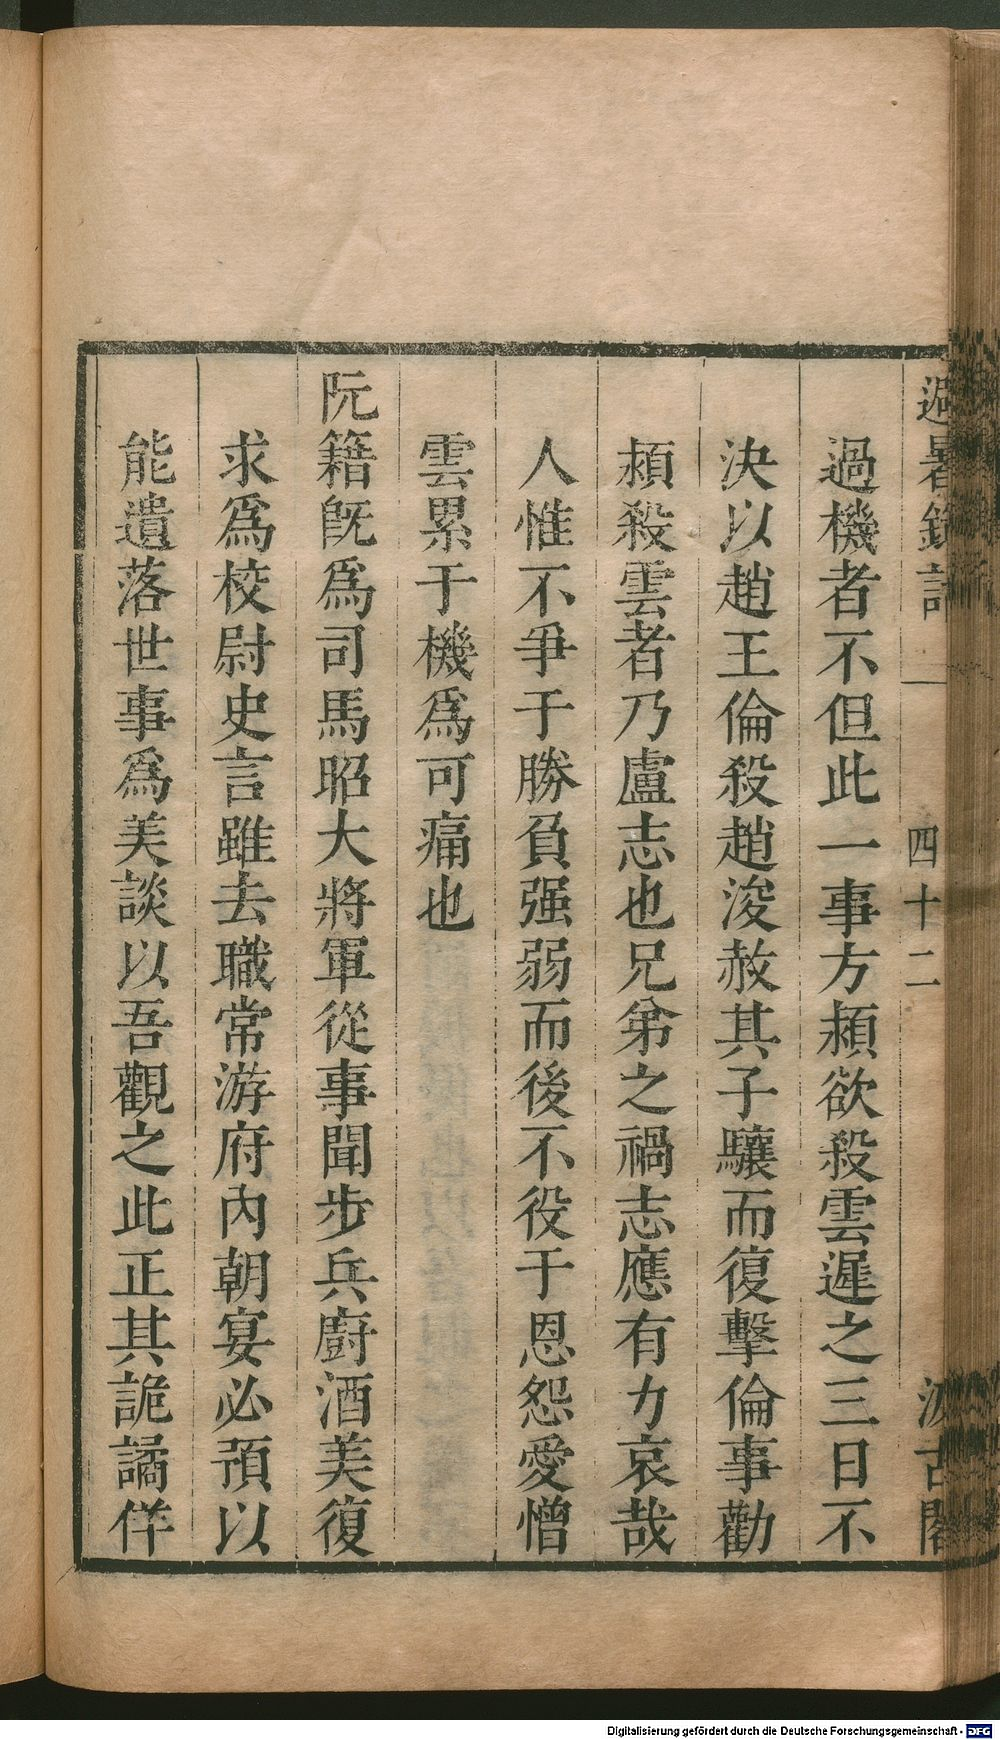 避暑錄話
四十二
汲古閣
過機者不但此一事方熲欲殺雲遲之三日不
決以趙王倫殺趙浚赦其子驤而復擊倫事勸
熲殺雲者乃盧志也兄弟之禍志應有力哀哉
人惟不爭于勝負强弱而後不役于恩怨愛憎
雲累于機爲可痛也
阮籍旣爲司馬昭大將軍從事聞步兵廚酒美復
求爲校尉史言雖去職常游府內朝宴必預以
能遺落世事爲美談以吾觀之此正其詭譎佯
Digitalisierung gefördert durch die Deutsche Forschungsgemeinschaft - DFG